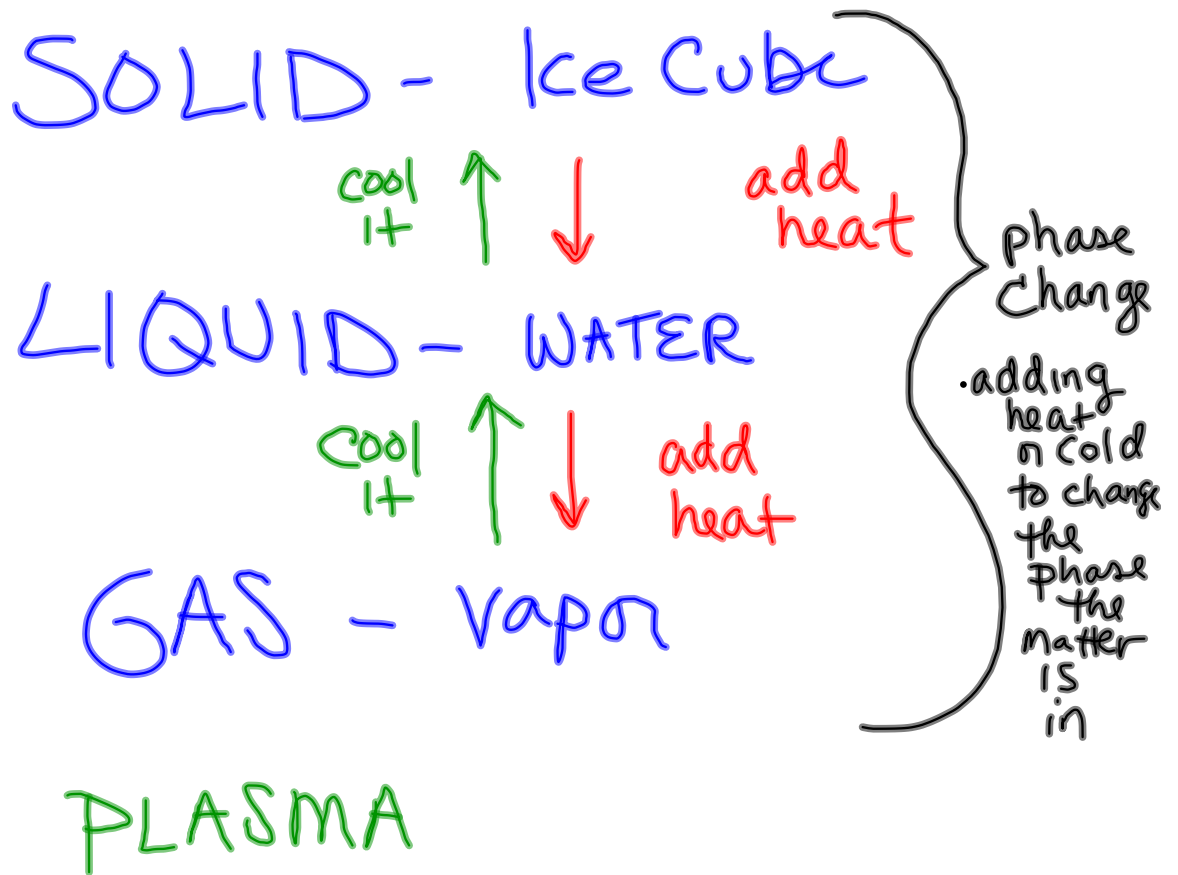 SOLID - Ice Cube
cool
it
add
heat
LIQUID - WATER
cool
it
add
heat
GAS - Vapor
PLASMA
phase
change
• adding
heat
or cold
to change
the
phase
the
matter
is
in